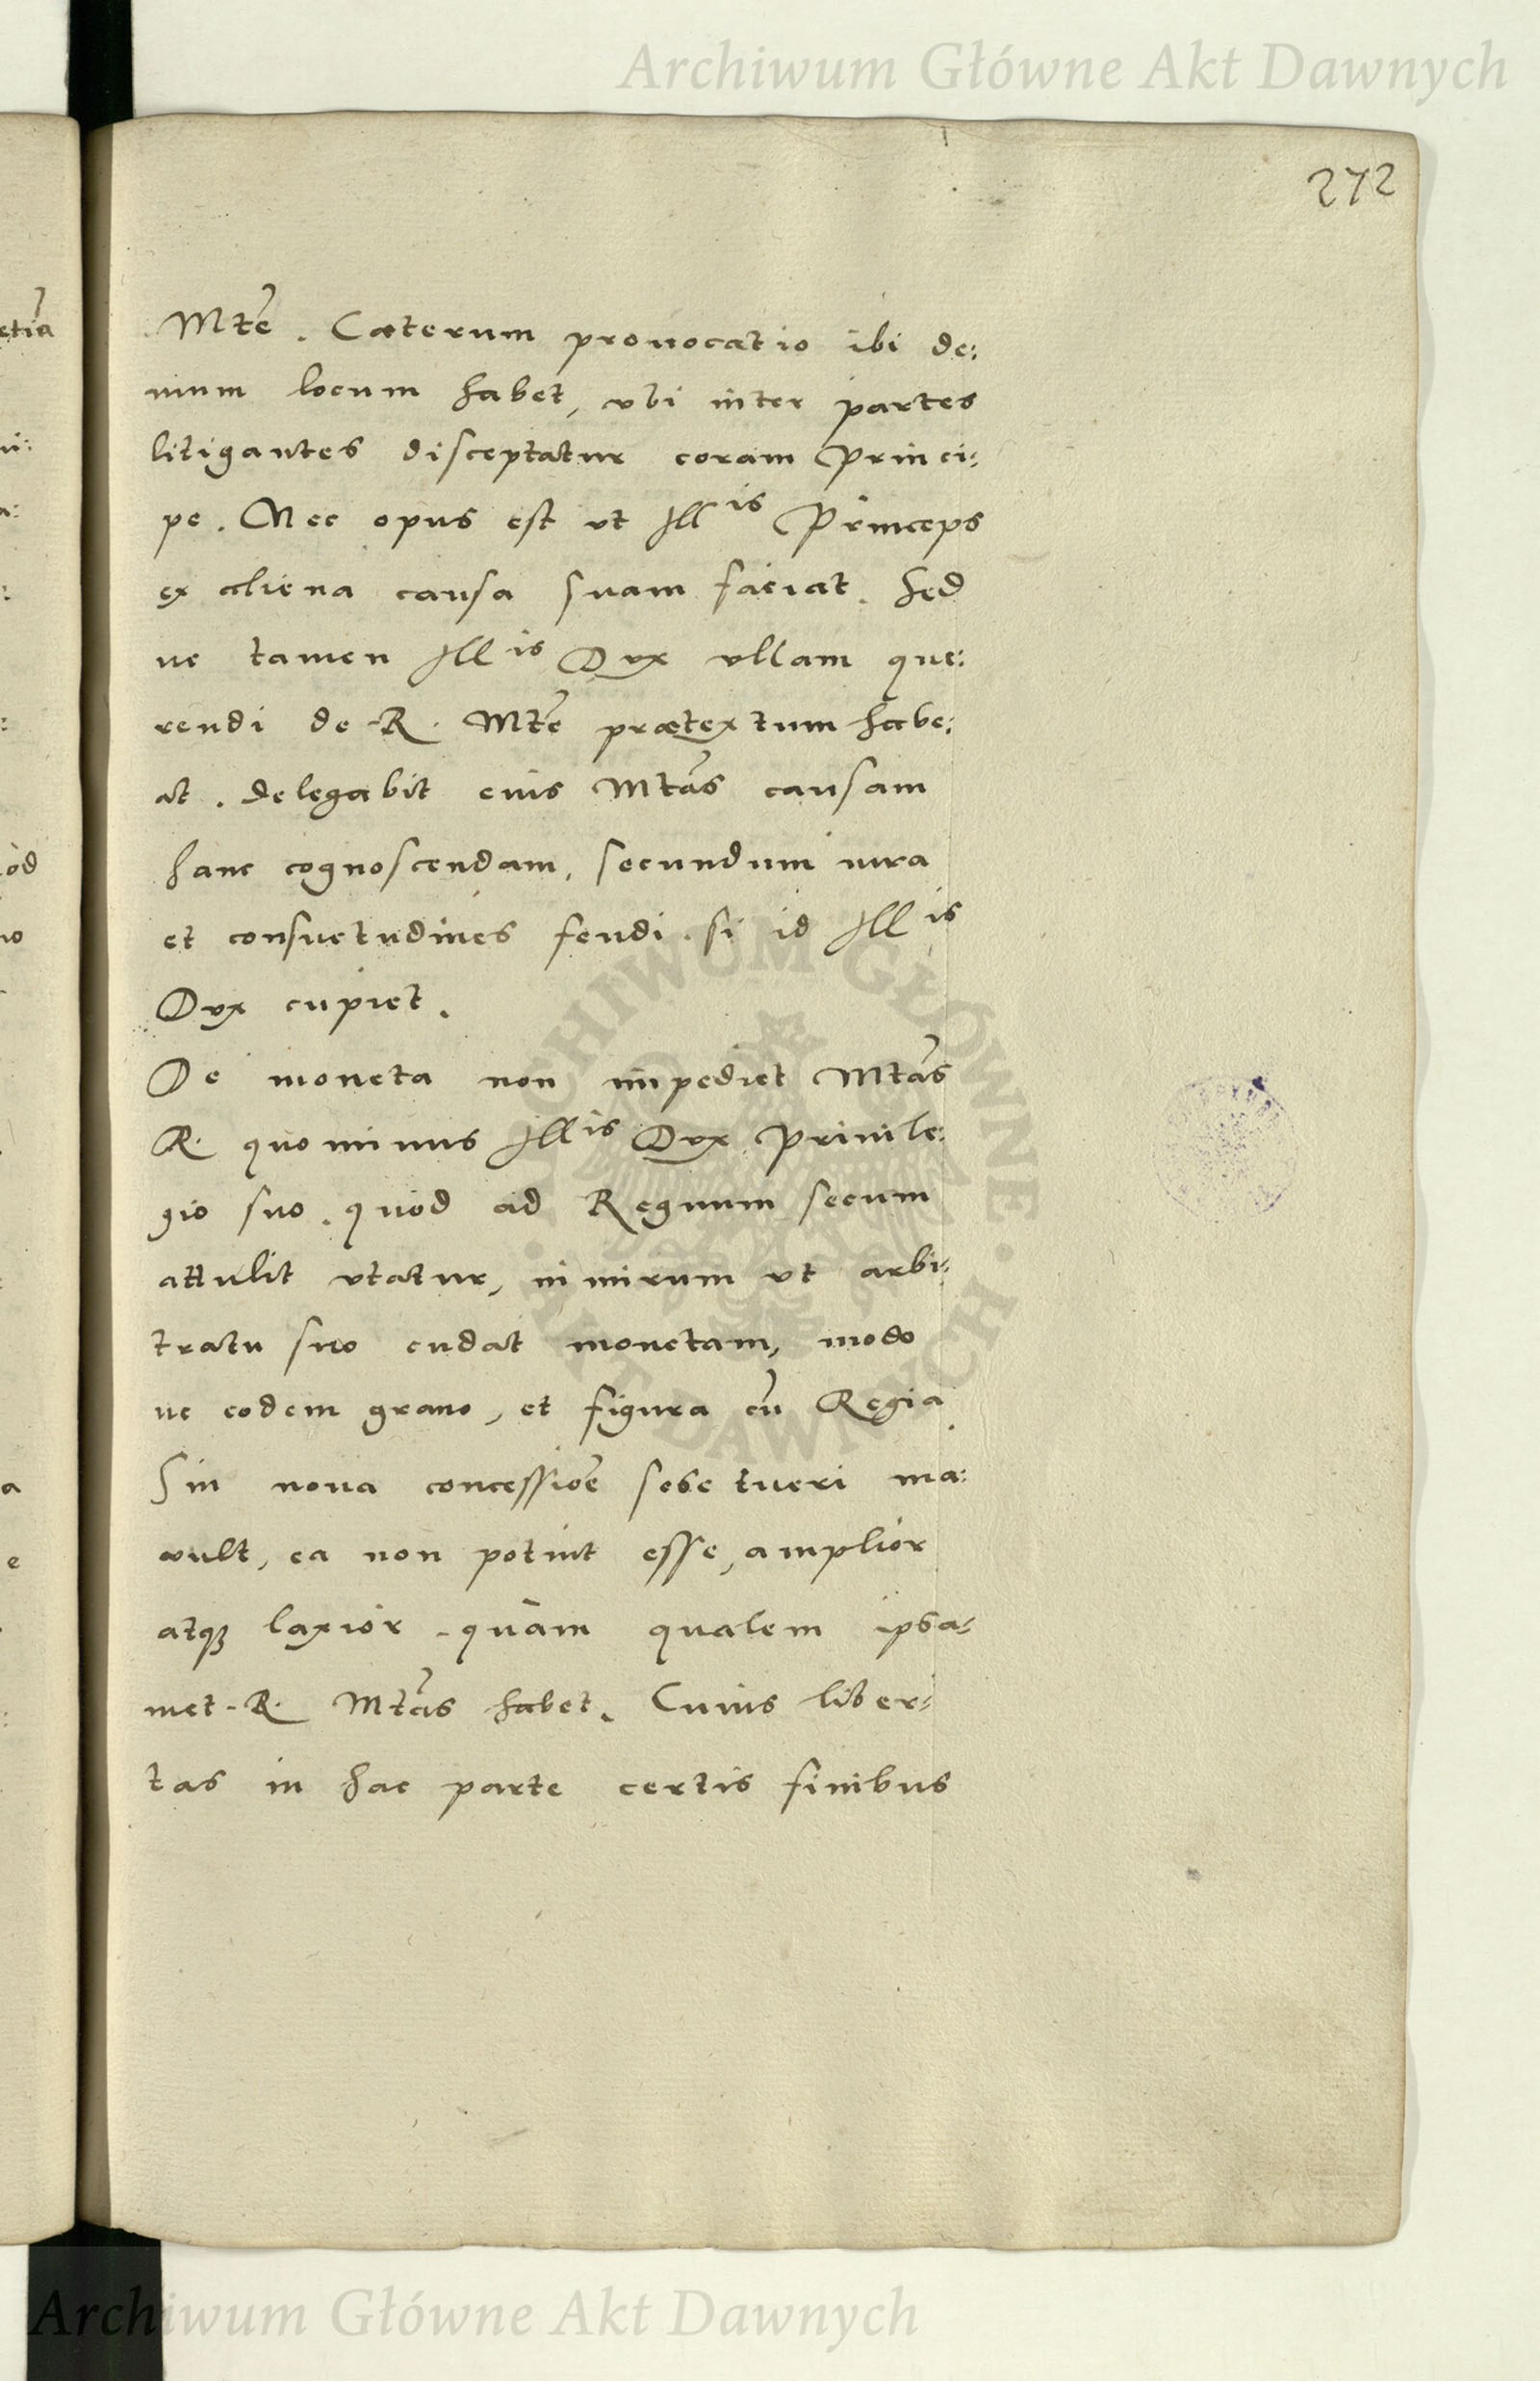 Archiwum Główne Akt Dawnych
272
Mtẽ. Cæterum prouocatio ibi de:
mum locum habet, vbi inter partes
litigantes disceptatur coram Princi:
pe. Nec opus est vt Ill is Princeps
ex aliena causa suam faciat. Sed
ne tamen Ill is Dux vllam que:
rendi de R. Mtẽ prætextum habe:
at. delegabit eius Mtãs causam
hanc cognoscendam, secundum iura
et consuetudines feudi. si id Ill is
Dux cupiet.
De moneta non impediet Mtãs
R. quominus Ill is Dux Priuile:
gio suo, quod ad Regnum secum
attulit vtatur, nimirum vt arbi:
tratu suo cudat monetam, modo
ne eodem grano, et figura cũ Regia.
Sin noua concessiõe sese tueri ma:
uult, ea non potuit esse, amplior
atqꝫ laxior quàm qualem ipsa:
met R. Mtãs habet. Cuius liber:
tas in hac parte certis finibus
Archiwum Główne Akt Dawnych